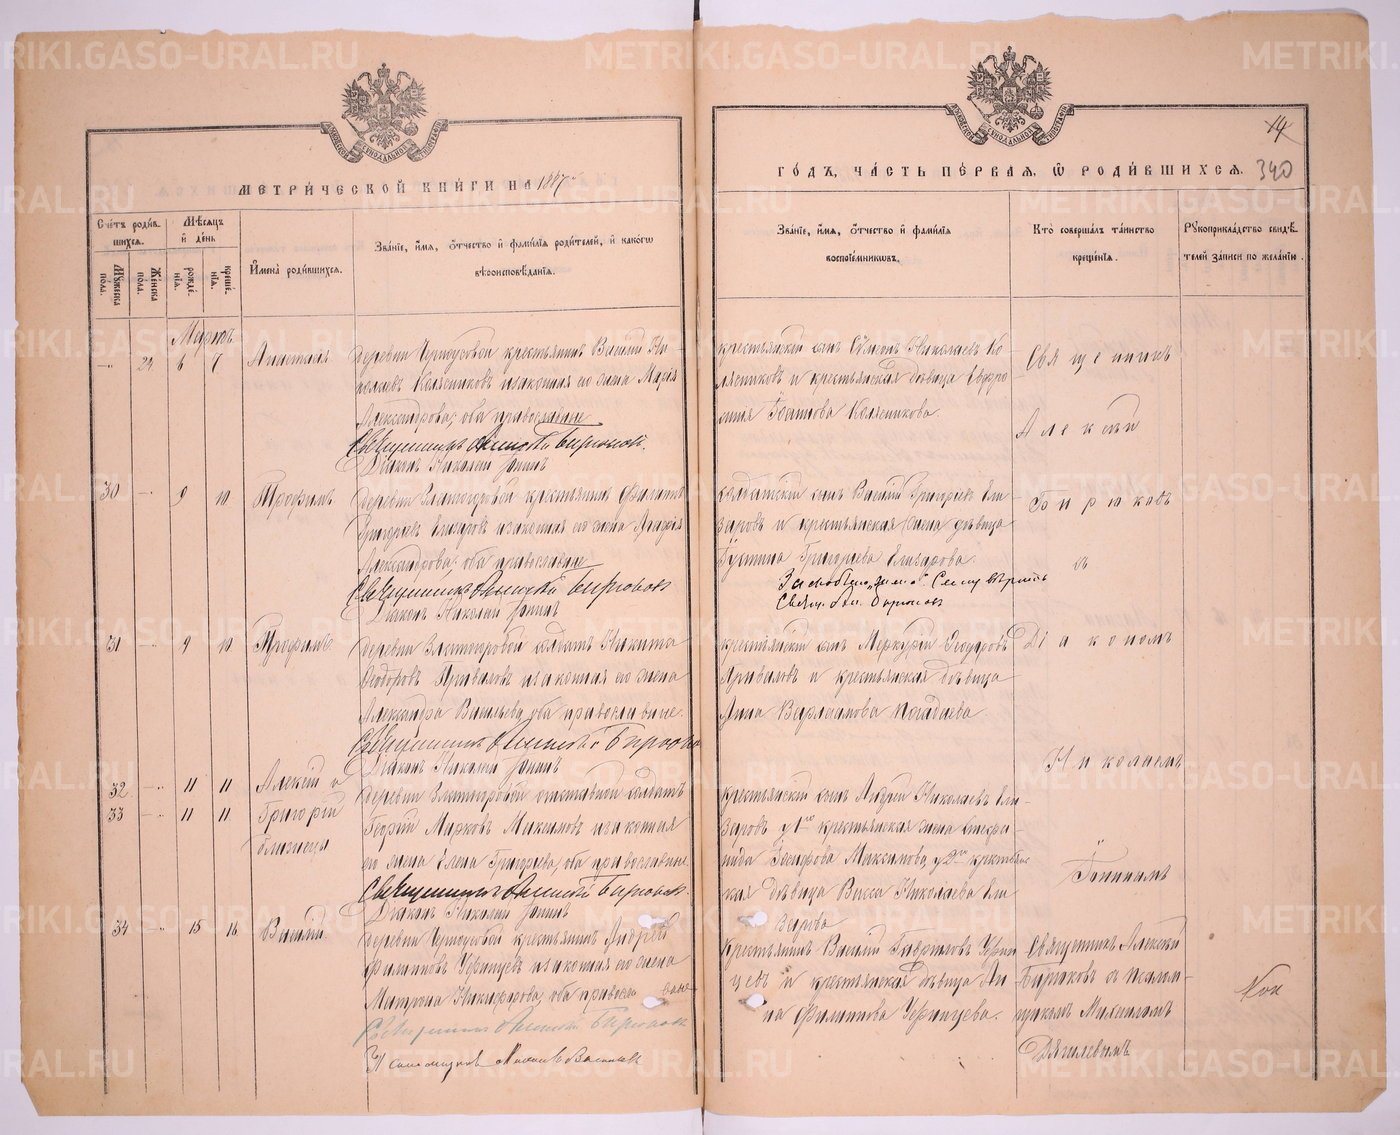 МЕТРИ́ЧЕСКОЙ КНИ́ГИ НА 1887
ГО́ДЪ, ЧА́СТЬ ПЕ́РВАЯ, Ѡ РОДИ́ВШИХСЯ.
14
340
Сче́тъ роди́в-
шихся.
Му́жеска по́ла.
Же́нска по́ла.
Мѣ́сяцъ
и де́нь
рожде́нїя.
креще́нїя.
И́мена роди́вшихся.
Зва́нїе, и́мя, о́тчество и фами́лїя роди́телей, и како́гѡ
вѣроисповѣ́данїя.
Зва́нїе, и́мя, о́тчество и фами́лїя
воспрїе́мникѡвъ.
Кто̀ соверша́лъ та́инство
креще́нїя.
Рꙋкоприкла́дство свидѣ́-
телей за́писи по жела́нїю.
Мартъ
24 6 7 Анастасія
деревни Черноусовой крестьянинъ Василій Ни-
колаевъ Колясниковъ и законная его жена Марія
Александрова; оба православные
Священникъ Алексѣй Бирюковъ.
Діаконъ Николай Іонинъ
крестьянскій сынъ Сѵмеонъ Николаевъ Ко-
лясниковъ и крестьянская дѣвица Евфро-
синія Колясникова.
Священникъ
Алексѣй
30 9 10 Трофимъ
деревни Златогоровой крестьянинъ Филиппъ
Григорьевъ Елизаровъ и законная его жена
Александрова; оба православные
Священникъ Алексѣй Бирюковъ
Діаконъ Николай Іонинъ
солдатскій сынъ Василій Григорьевъ Ели-
заровъ и крестьянская жена дѣвица
Іустина Григорьева Елизарова.
Свящ. Ал. Бирюковъ
Бирюковъ
съ
31 9 10 Трофимъ
деревни Златогоровой солдатъ Никита
Ѳеодоровъ Приваловъ и законная его жена
Александра Васильева, оба православные.
Священникъ Алексѣй Бирюковъ
Діаконъ Николай Іонинъ
крестьянскій сынъ Меркурій Ѳеодоровъ
Приваловъ и крестьянская дѣвица
Анна Варлаамова Погадаева.
Діакономъ
Николаемъ
32 11 11 Алексій и
33 11 11 Григорій
близнецы
деревни Златогоровой отставной солдатъ
Георгій Марковъ Максимовъ и законная
его жена Елена Григорьева, оба православные
Священникъ Алексѣй Бирюковъ
Діаконъ Николай Іонинъ
крестьянскій сынъ Андрей Николаевъ Ели-
заровъ у 1го крестьянская жена Стефа-
нида Максимова, у 2го крестьянс-
кая дѣвица Васса Николаева Ели-
зарова
Іонинымъ
34 15 16 Василій
деревни Черноусовой крестьянинъ Андрей
Филипповъ Чернцевъ и законная его жена
Матрона Никифорова, оба православные
Священникъ Алексѣй Бирюковъ
Псаломщикъ
крестьянинъ Василій Гавриловъ Черни-
цевъ и крестьянская дѣвица Ан-
на Филиппова Черницева.
Священникъ Алексѣй
Бирюковъ съ псалом-
щикомъ Михаиломъ
Дягилевымъ
METRIKI.GASO-URAL.RU